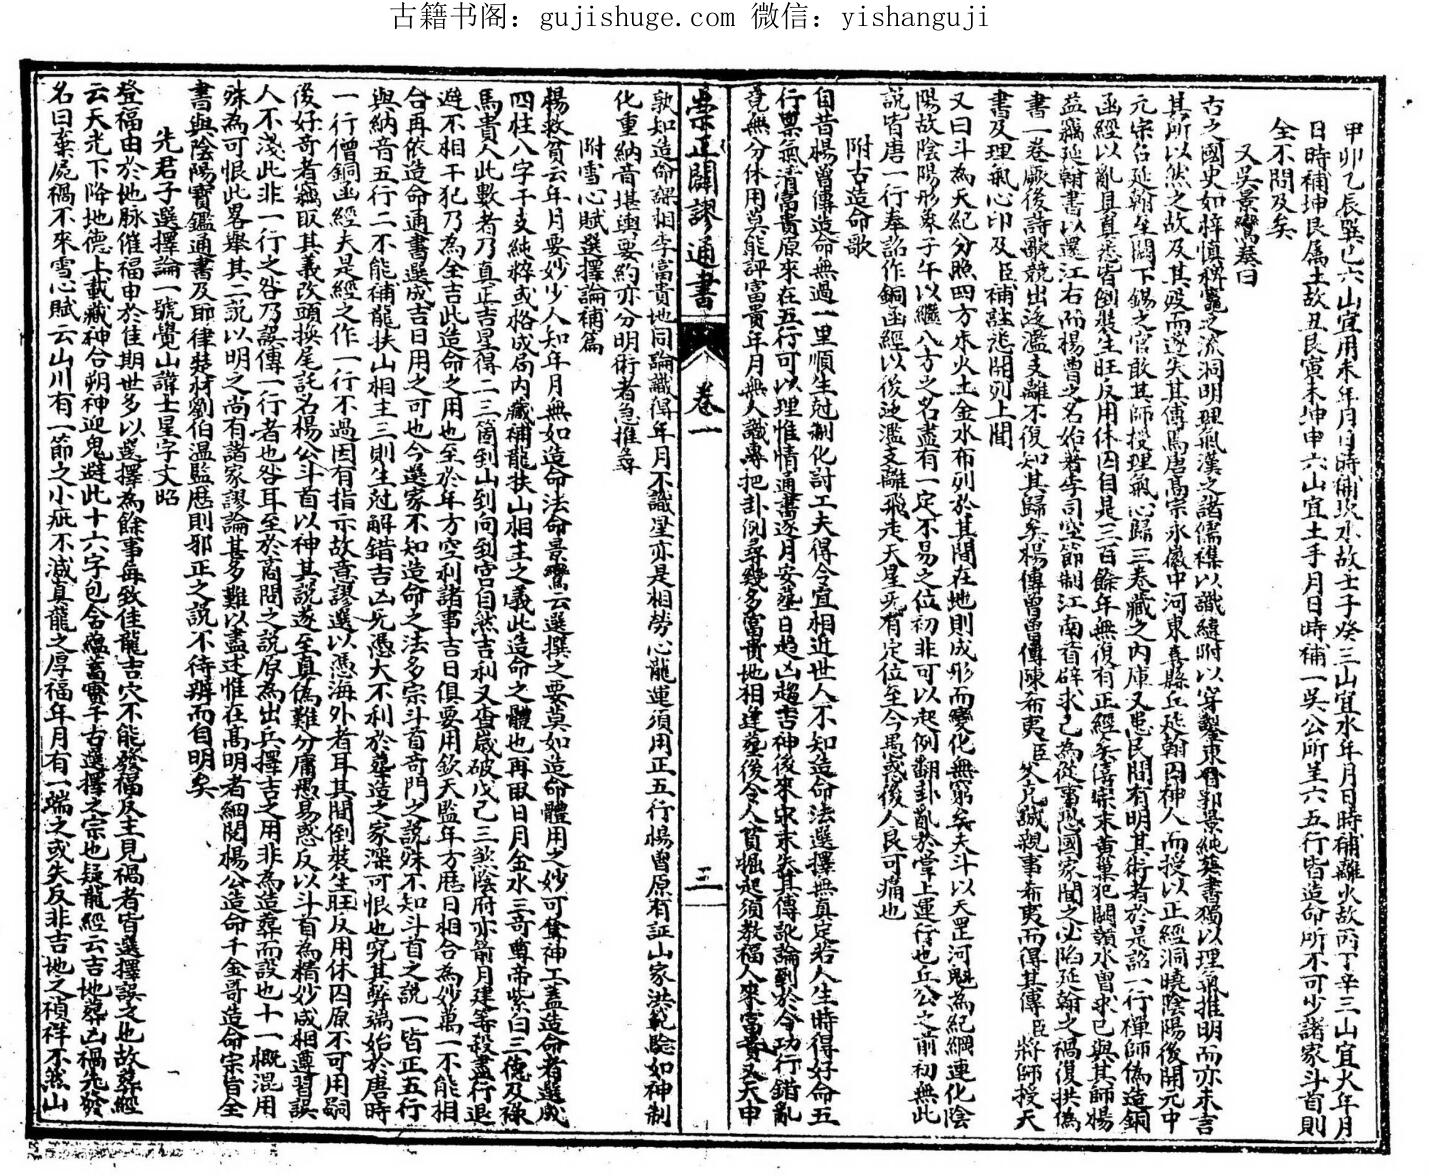 古籍书阁：gujishuge.com 微信：yishanguji
甲卯乙辰巽巳六山宜用未年月日時補坎水故士子癸三山宜水年月日時補離火故丙丁辛三山宜火年月
日時補坤艮属土故丑艮寅未坤申六山宜土手月日時補一吳公所生六五行皆造命所不可少諸家斗首則
全不問及矣
又吳景鸞奏曰
古之國史如梓慎裨竈之流洞明理氣漢之諸儒襍以讖緯附以穿鑿東晉郭景純葬書獨以理氣推明而亦未言
其所以然之故及其殁而遂失其傳焉唐髙宗永徽中河東喜縣丘延翰因神人而授以正經洞曉陰陽後開元中
元宗召延翰至闕下錫之官敢其師授理氣心歸三卷藏之内庫又患民間有明其術者於是詔一行禪師偽造銅
函經以亂其真悉皆倒裝生旺反用休囚自是三百餘年無復有正經矣僖宗末黄巢犯闕贛水曽求己與其師楊
益竊延翰書以還江右而楊曽之名始著李司空節制江南首辟求己為從事恐國家聞之必陷延翰之禍復拱偽
書一卷厥後詩歌競出泛濫支離不復知其歸矣楊傳曽曽傳陳希夷臣父克誠親事希夷而得其傳臣將師授天
書及理氣心印及臣補註悉開列上聞
又曰斗為天紀分照四方木火土金水布列於其間在地則成形而變化無窮矣夫斗以天罡河魁為紀綱運化陰
陽故陰陽形象子午以繼八方之名盡有一定不易之位初非可以起例翻卦亂於掌上運行也丘公之前初無此
説皆唐一行奉詔作銅函經以後泛濫支離飛走天星无有定位至今愚惑後人良可痛也
附古造命歌
自昔楊曽傳造命無過一里順生尅制化討工夫得令宜相近世人不知造命法選擇無真定若人生時得好命五
行禀氣清富貴原來在五行可以理惟情通書逐月安塟日趋凶趨吉神後來求末失其傳訛論到於今功行錯亂
竟無分休用莫能評富貴年月無人識專把卦例尋幾多富貴地相逢塟後令人貧掘起須教福人來富貴又天申
孰知造命課相李富貴地同論識得年月不識星亦是相勞心龍運須用正五行楊曽原有証山家洪範驗如神制
化重納音堪輿要約亦分明術者急推尋
附雪心賦選擇論補篇
楊救貧云年月要妙少人知年月無如造命法命景鸞云選撰之要莫如造命體用之妙可奪神工蓋造命者選成
四柱八字干支純粹或格成局内藏補龍扶山相主之義此造命之體也再取日月金水三奇尊帝紫白三德及禄
馬貴人此數者乃真正吉星得二三箇到山到向到宫自然吉利又査歲破戊己三煞陰府亦箭月建等殺盡行退
避不相干犯乃為全吉此造命之用也至於年方空利諸事吉日俱要用欽天監年方歴日相合為妙萬一不能相
合再依造命通書選成吉日用之可也今選家不知造命之法多宗斗首奇門之説殊不知斗首之説一皆正五行
與納音五行二不能補龍扶山相主三則生尅解錯吉凶无憑大不利於塟造之家深可恨也究其弊端始於唐時
一行僧銅函經夫是經之作一行不過因有指示故意謬選以憑海外者耳其間倒裝生旺反用休囚原不可用嗣
後好奇者竊取其義改頭換尾託名楊公斗首以神其説遂至真偽難分庸愚易惑反以斗首為精妙咸相遵習誤
人不淺此非一行之咎乃誤傳一行者也咎耳至於奇問之説原為出兵擇吉之用非為造葬而設也十一概混用
殊為可恨此畧舉其二説以明之尚有諸家謬論甚多難以盡述惟在髙明者細閲楊公造命千金哥造命宗旨全
書與陰陽寶鑑通書及耶律楚材劉伯温監歴則邪正之説不待辨而自明矣
先君子選擇論一號覺山諱士星字文昭
登福由於地脉催福申於佳期世多以選擇為餘事每致佳龍吉穴不能發福及主見禍者皆選擇誤之也故葬經
云天光下降地德上載藏神合朔神迎鬼避此十六字包含蘊蓄實千古選擇之宗也疑龍經云吉地葬凶禍先發
名曰棄屍禍不來雪心賦云山川有一節之小疵不減真龍之厚福年月有一端之或失反非吉地之禎祥不然山
崇正闢謬通書
卷一
三